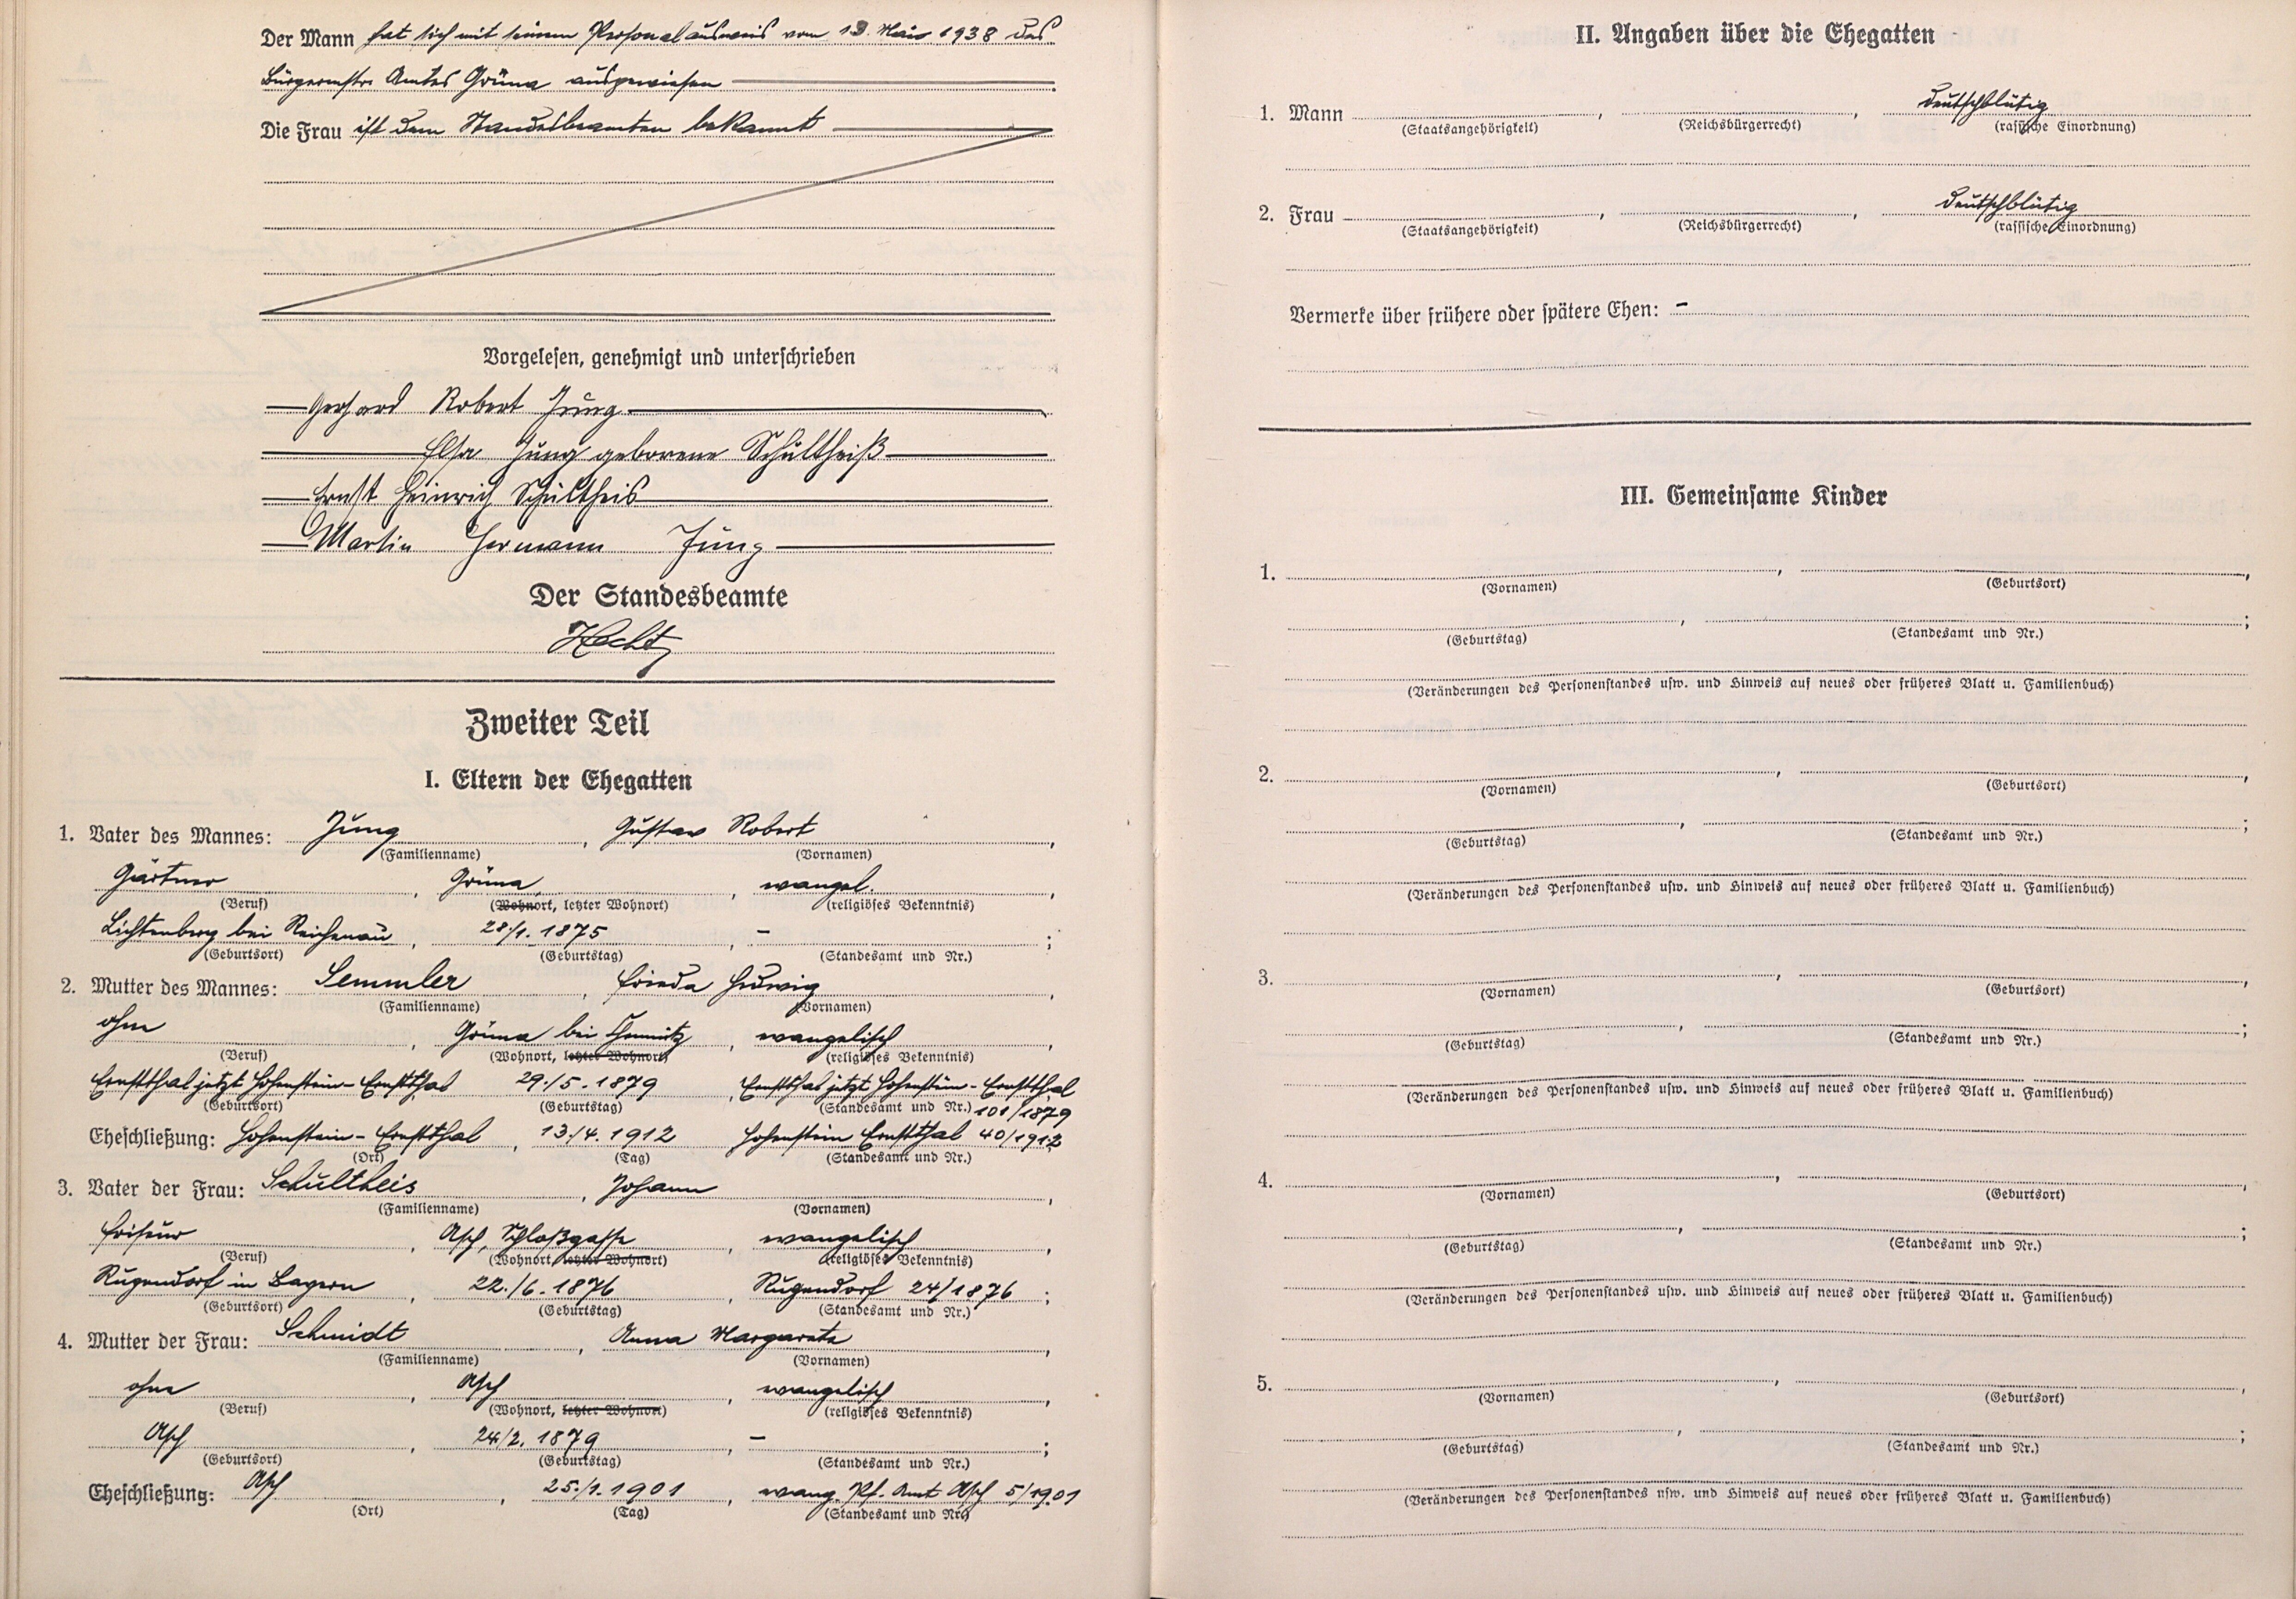 Der Mann hat sich mit seinem Personalausweis vom 13. März 1938 des
Bürgermstr. Amtes Grüna ausgewiesen
Die Frau ist dem Standesbeamten bekannt
Vorgelesen, genehmigt und unterschrieben
Gerhard Robert Jung
Elsa Jung geborene Schultheiß
Ernst Heinrich Schultheis
Martin Hermann Jung
Der Standesbeamte
Hecht
Zweiter Teil
I. Eltern der Ehegatten
1. Vater des Mannes: Jung, Gustav Robert,
(Familienname) (Vornamen)
Gärtner, Grüna, evangel.,
(Beruf) (Wohnort, letzter Wohnort) (religiöses Bekenntnis)
Lichtenberg bei Reichenau, 28./1. 1875, – ;
(Geburtsort) (Geburtstag) (Standesamt und Nr.)
2. Mutter des Mannes: Semmler, Frieda Hedwig,
(Familienname) (Vornamen)
ohne, Grüna bei Chemnitz, evangelisch,
(Beruf) (Wohnort, letzter Wohnort) (religiöses Bekenntnis)
Ernstthal jetzt Hohenstein-Ernstthal 29./5. 1879, Ernstthal jetzt Hohenstein-Ernstthal
(Geburtsort) (Geburtstag) (Standesamt und Nr.) 101/1879
Eheschließung: Hohenstein-Ernstthal, 13./4. 1912 Hohenstein Ernstthal 40/1912
(Ort) (Tag) (Standesamt und Nr.)
3. Vater der Frau: Schultheis, Johann,
(Familienname) (Vornamen)
Friseur, Asch, Schloßgasse, evangelisch,
(Beruf) (Wohnort, letzter Wohnort) (religiöses Bekenntnis)
Rugendorf in Bayern, 22./6. 1876, Rugendorf 24/1876;
(Geburtsort) (Geburtstag) (Standesamt und Nr.)
4. Mutter der Frau: Schmidt, Anna Margareta,
(Familienname) (Vornamen)
ohne, Asch, evangelisch,
(Beruf) (Wohnort, letzter Wohnort) (religiöses Bekenntnis)
Asch, 24./2. 1879, – ;
(Geburtsort) (Geburtstag) (Standesamt und Nr.)
Eheschließung: Asch, 25./1. 1901, evang. Pf. Amt Asch 5/1901
(Ort) (Tag) (Standesamt und Nr.)
II. Angaben über die Ehegatten
1. Mann , , deutschblütig
(Staatsangehörigkeit) (Reichsbürgerrecht) (rassische Einordnung)
2. Frau , , deutschblütig
(Staatsangehörigkeit) (Reichsbürgerrecht) (rassische Einordnung)
Vermerke über frühere oder spätere Ehen: –
III. Gemeinsame Kinder
1. , ,
(Vornamen) (Geburtsort)
, ;
(Geburtstag) (Standesamt und Nr.)
(Veränderungen des Personenstandes usw. und Hinweis auf neues oder früheres Blatt u. Familienbuch)
2. , ,
(Vornamen) (Geburtsort)
, ;
(Geburtstag) (Standesamt und Nr.)
(Veränderungen des Personenstandes usw. und Hinweis auf neues oder früheres Blatt u. Familienbuch)
3. , ,
(Vornamen) (Geburtsort)
, ;
(Geburtstag) (Standesamt und Nr.)
(Veränderungen des Personenstandes usw. und Hinweis auf neues oder früheres Blatt u. Familienbuch)
4. , ,
(Vornamen) (Geburtsort)
, ;
(Geburtstag) (Standesamt und Nr.)
(Veränderungen des Personenstandes usw. und Hinweis auf neues oder früheres Blatt u. Familienbuch)
5. , ,
(Vornamen) (Geburtsort)
, ;
(Geburtstag) (Standesamt und Nr.)
(Veränderungen des Personenstandes usw. und Hinweis auf neues oder früheres Blatt u. Familienbuch)